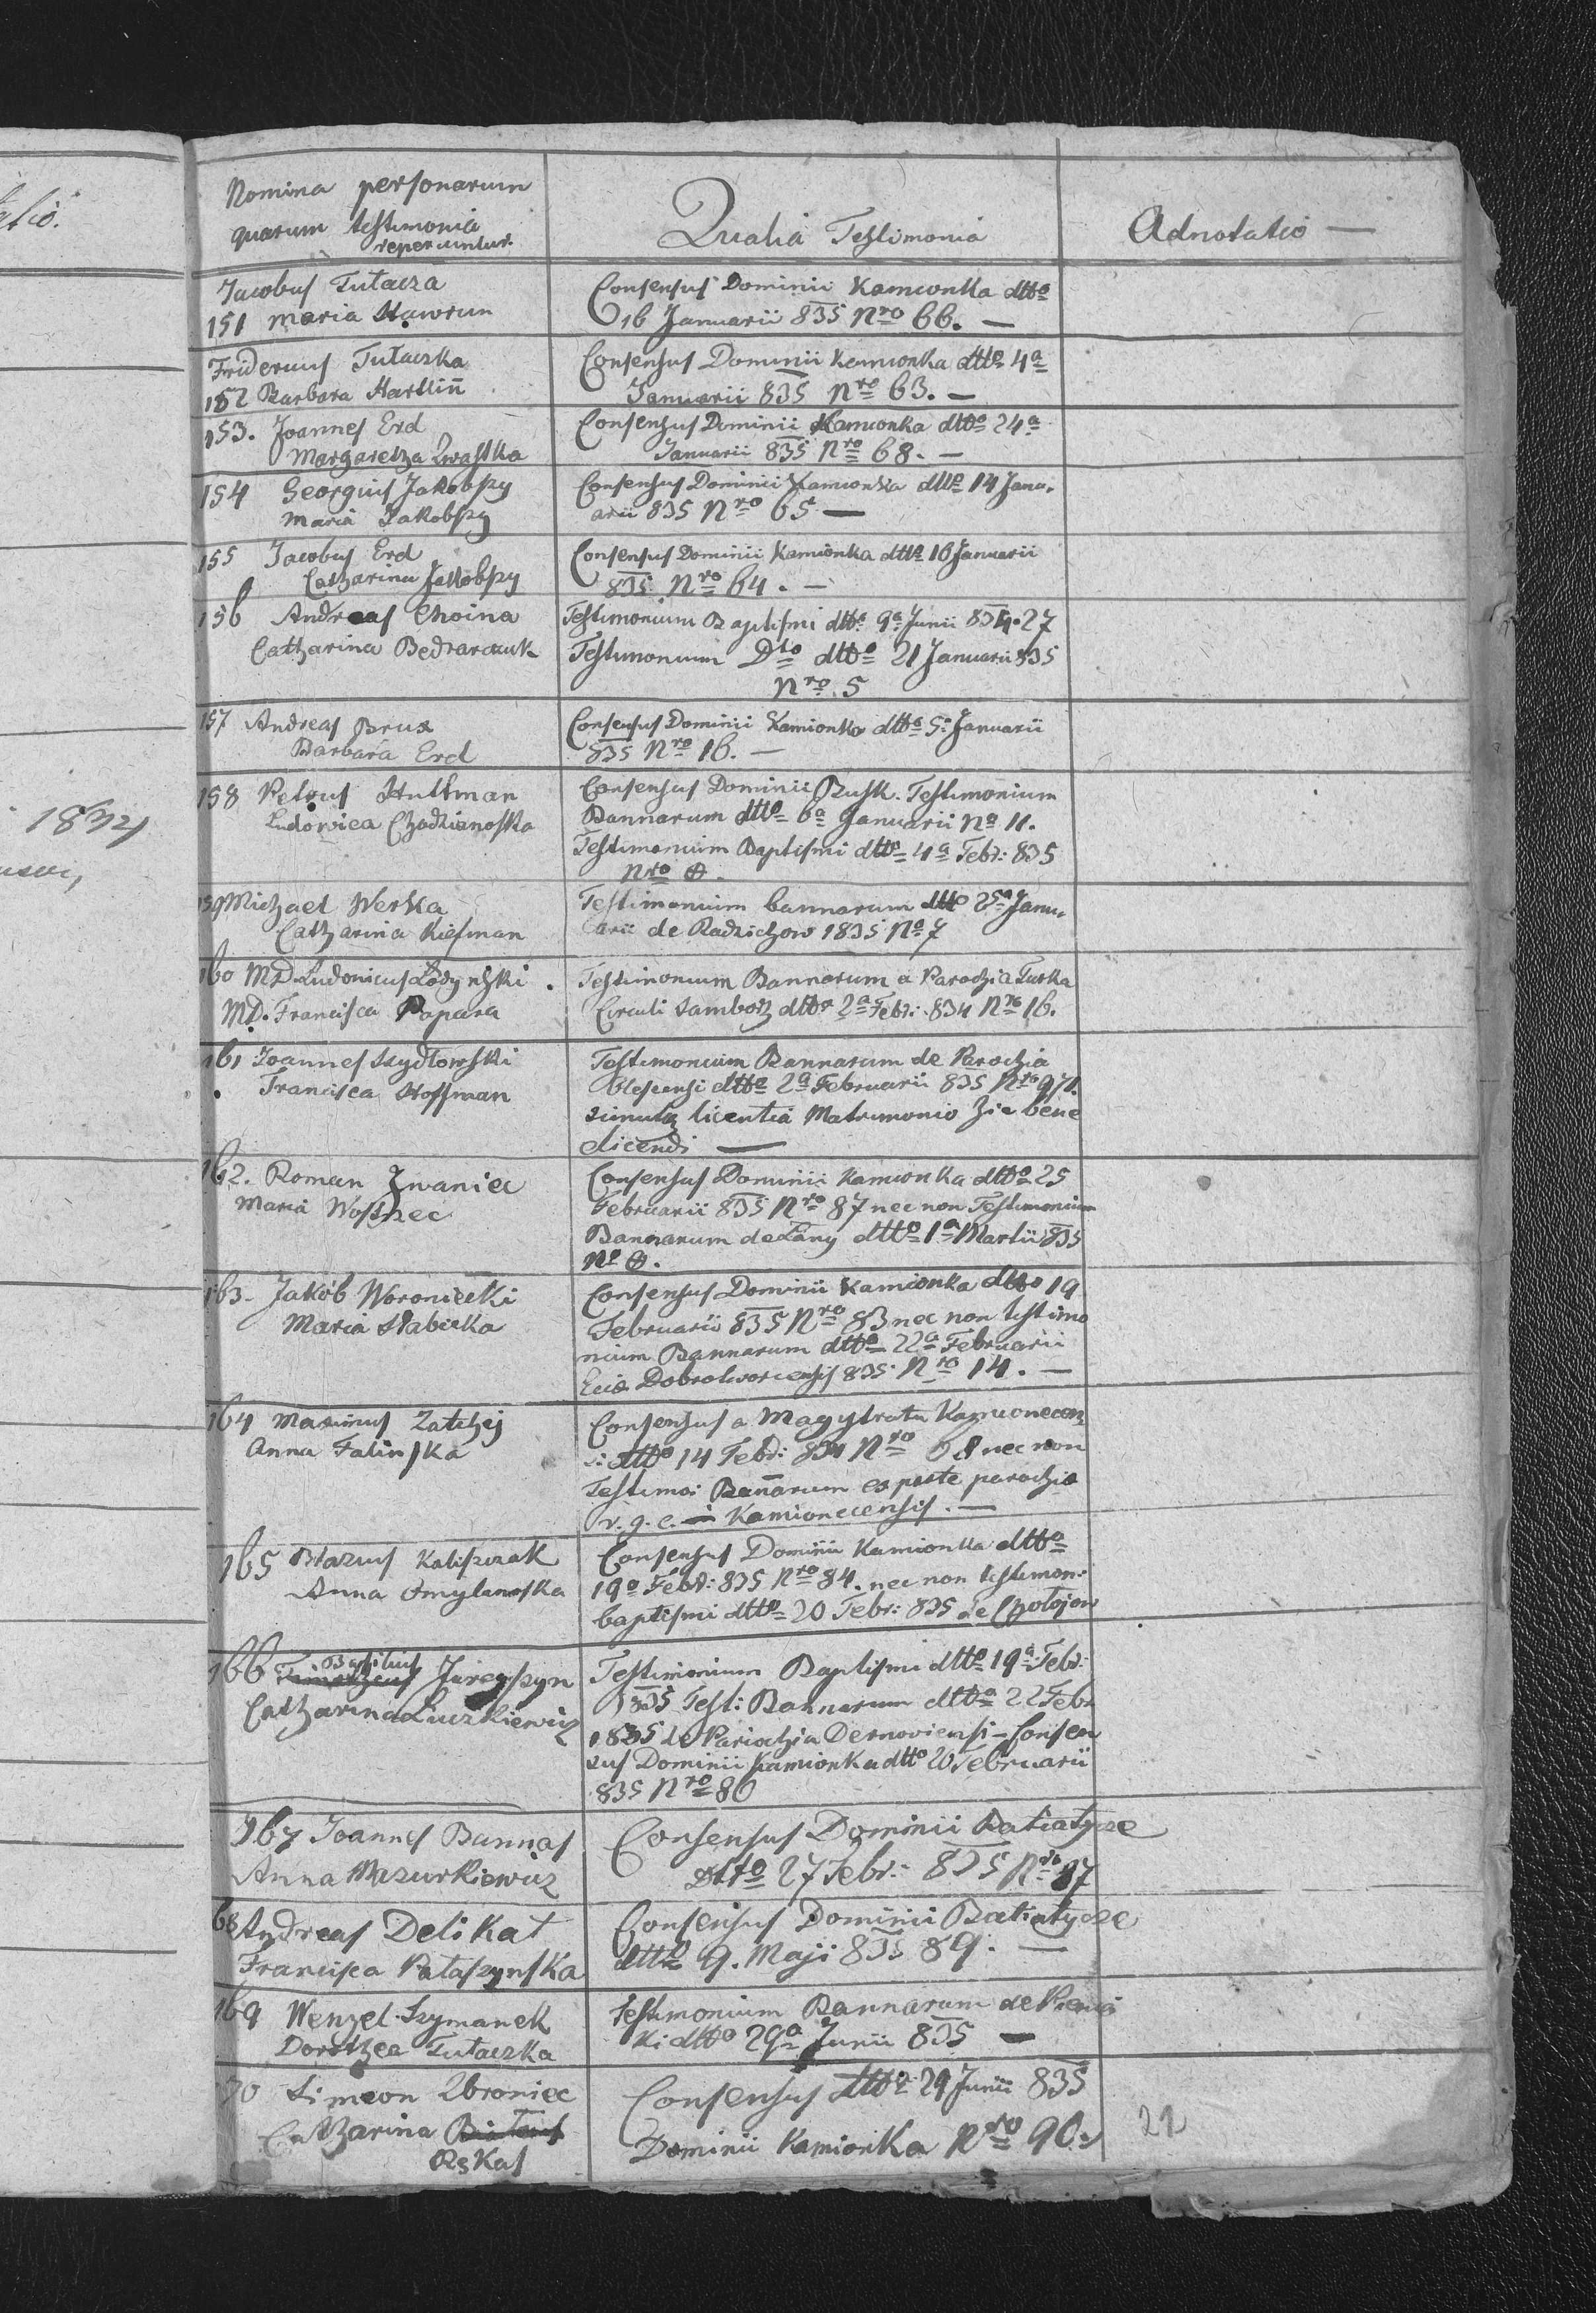 Nomina personarum
quarum testimonia
reperiuntur.
Qualia Testimonia
Adnotatio —
Jacobus Tutacza
151 Maria Hawrun
Consensus Dominii Kamionka dtto
16 Januarii 835 Nro 66. —
Fridericus Tutaczka
152 Barbara Hartlin
Consensus Dominii Kamionka dtto 4a
Januarii 835 Nro 63. —
153. Joannes Erd
Margaretha Zwaska
Consensus Dominii Kamionka dtto 24a
Januarii 835 Nro 68. —
154 Georgius Jakobszy
Maria Jakobszy
Consensus Dominii Kamionka dtto 14 Janu-
arii 835 Nro 65 —
155 Jacobus Erd
Catharina Jakobszy
Consensus Dominii Kamionka dtto 16 Januarii
835 Nro 64. —
156 Andreas Choina
Catharina Bednarczuk
Testimonium Baptismi dtto 9a Junii 834. 27
Testimonium Dto dtto 21 Januarii 835
Nro 5
157 Andreas Brux
Barbara Erd
Consensus Dominii Kamionka dtto 5a Januarii
835 Nro 16. —
158 Petrus Huttman
Ludovica Chodzianoska
Consensus Dominii Busk. Testimonium
Bannarum dtto 6a Januarii No 11.
Testimonium Baptismi dtto 4a Febr: 835
Nro 0.
159 Michael Werka
Catharina Kiesman
Testimonium bannarum dtto 25a Janu-
arii de Radzichow 1835 No 7
160 MD Ludovicus Łodynski
MD. Francisca Papara
Testimonium Bannarum a Parochia Turka
Circuli Samborz dtto 2a Febr: 834 Nro 16.
161 Joannes Szydłowski
Francisca Hoffman
Testimonium Bannarum de Parochia
Olescensi dtto 2a Februarii 835 Nro 971.
simulq licentia Matrimonio hic bene
dicendi —
162. Roman Iwaniec
Maria Wostrzec
Consensus Dominii Kamionka dtto 25
Februarii 835 Nro 87 nec non Testimonium
Bannarum de Łany dtto 1a Martii 835
No 0.
163. Jakób Woroniecki
Maria Słabicka
Consensus Dominii Kamionka dtto 19
Februarii 835 Nro 83 nec non testimo
nium Bannarum dtto 22a Februarii
Ecia Dobrotworiensis 835 Nro 14. —
164 Maximus Zatchij
Anna Falinska
Consensus a Magystratu Kamionecen
si dtto 14 Febr: 834 Nro 68 nec non
Testimo: Bannarum ex parte parochia
r. g. c. Kamionecensis. —
165 Blazius Kaliszczak
Anna Omylanoska
Consensus Dominii Kamionka dtto
19a Febr: 835 Nro 84. nec non testimon:
baptismi dtto 20 Febr: 835 de Chołojow
166 Basilius Jureyszyn
Catharina Luczkiewicz
Testimonium Baptismi dtto 19a Febr:
835 Test: Bannarum dtto 22 Febr
1835 de Pariochia Dernoviensi - Consen
sus Dominii Kamionka dtto 20 Februarii
835 Nro 86
167 Joannes Bannas
Anna Mazurkiewicz
Consensus Dominii Batiatycze
Dtto 27 Febr: 835 Nro 87
168 Andreas Delikat
Francisca Pataszynska
Consensus Dominii Batiatycze
dtto 9. Maji 835 89. —
169 Wenzel Szymanek
Dorothea Tutaczka
Testimonium Bannarum de
ki dtto 29a Junii 835 —
170 Simeon Zbroniec
Catharina
Rskas
Consensus dtto 29 Junii 835
Dominii Kamionka Nro 90.
22
1834